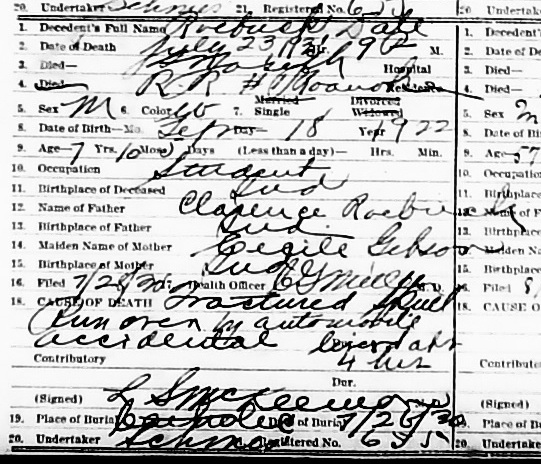 20. Undertaker Schnur 21. Registered No. 20. Undertaker
1. Decedent's Full Name Roebuck Dale 1. Decedent's
2. Date of Death July 23 M. 2. Date of De
3. Died— Hospital 3. Died—
4. Died R R # Roanoke Residence 4. Died
5. Sex M 6. Color W 7. Married Single Divorced Widowed 5. Sex m
8. Date of Birth—Mo. Sept Day— 18 Year 1922 8. Date of Bir
9. Age— 7 Yrs. 10 Mos. 5 Days (Less than a day)— Hrs. Min. 9. Age— 57
10. Occupation Student 10. Occupation
11. Birthplace of Deceased Ind 11. Birthplace
12. Name of Father Clarence Roebuck 12. Name of F
13. Birthplace of Father Ind. 13. Birthplace
14. Maiden Name of Mother Cecile Gibson Maiden N
15. Birthplace of Mother Ind 15. Birthplace
16. Filed 7/25/30 Health Officer C G Miller M.D. Filed
18. CAUSE OF DEATH Fractured Skull 18. CAUSE O
(Run over by automobile
accidental
4 hrs
Contributory Contribute
Dur.
(Signed) (Signed)
19. Place of Burial Catholic Date of Burial 7/26/30 19. Place of Bu
20. Undertaker Registered No. 655 20. Undertaker